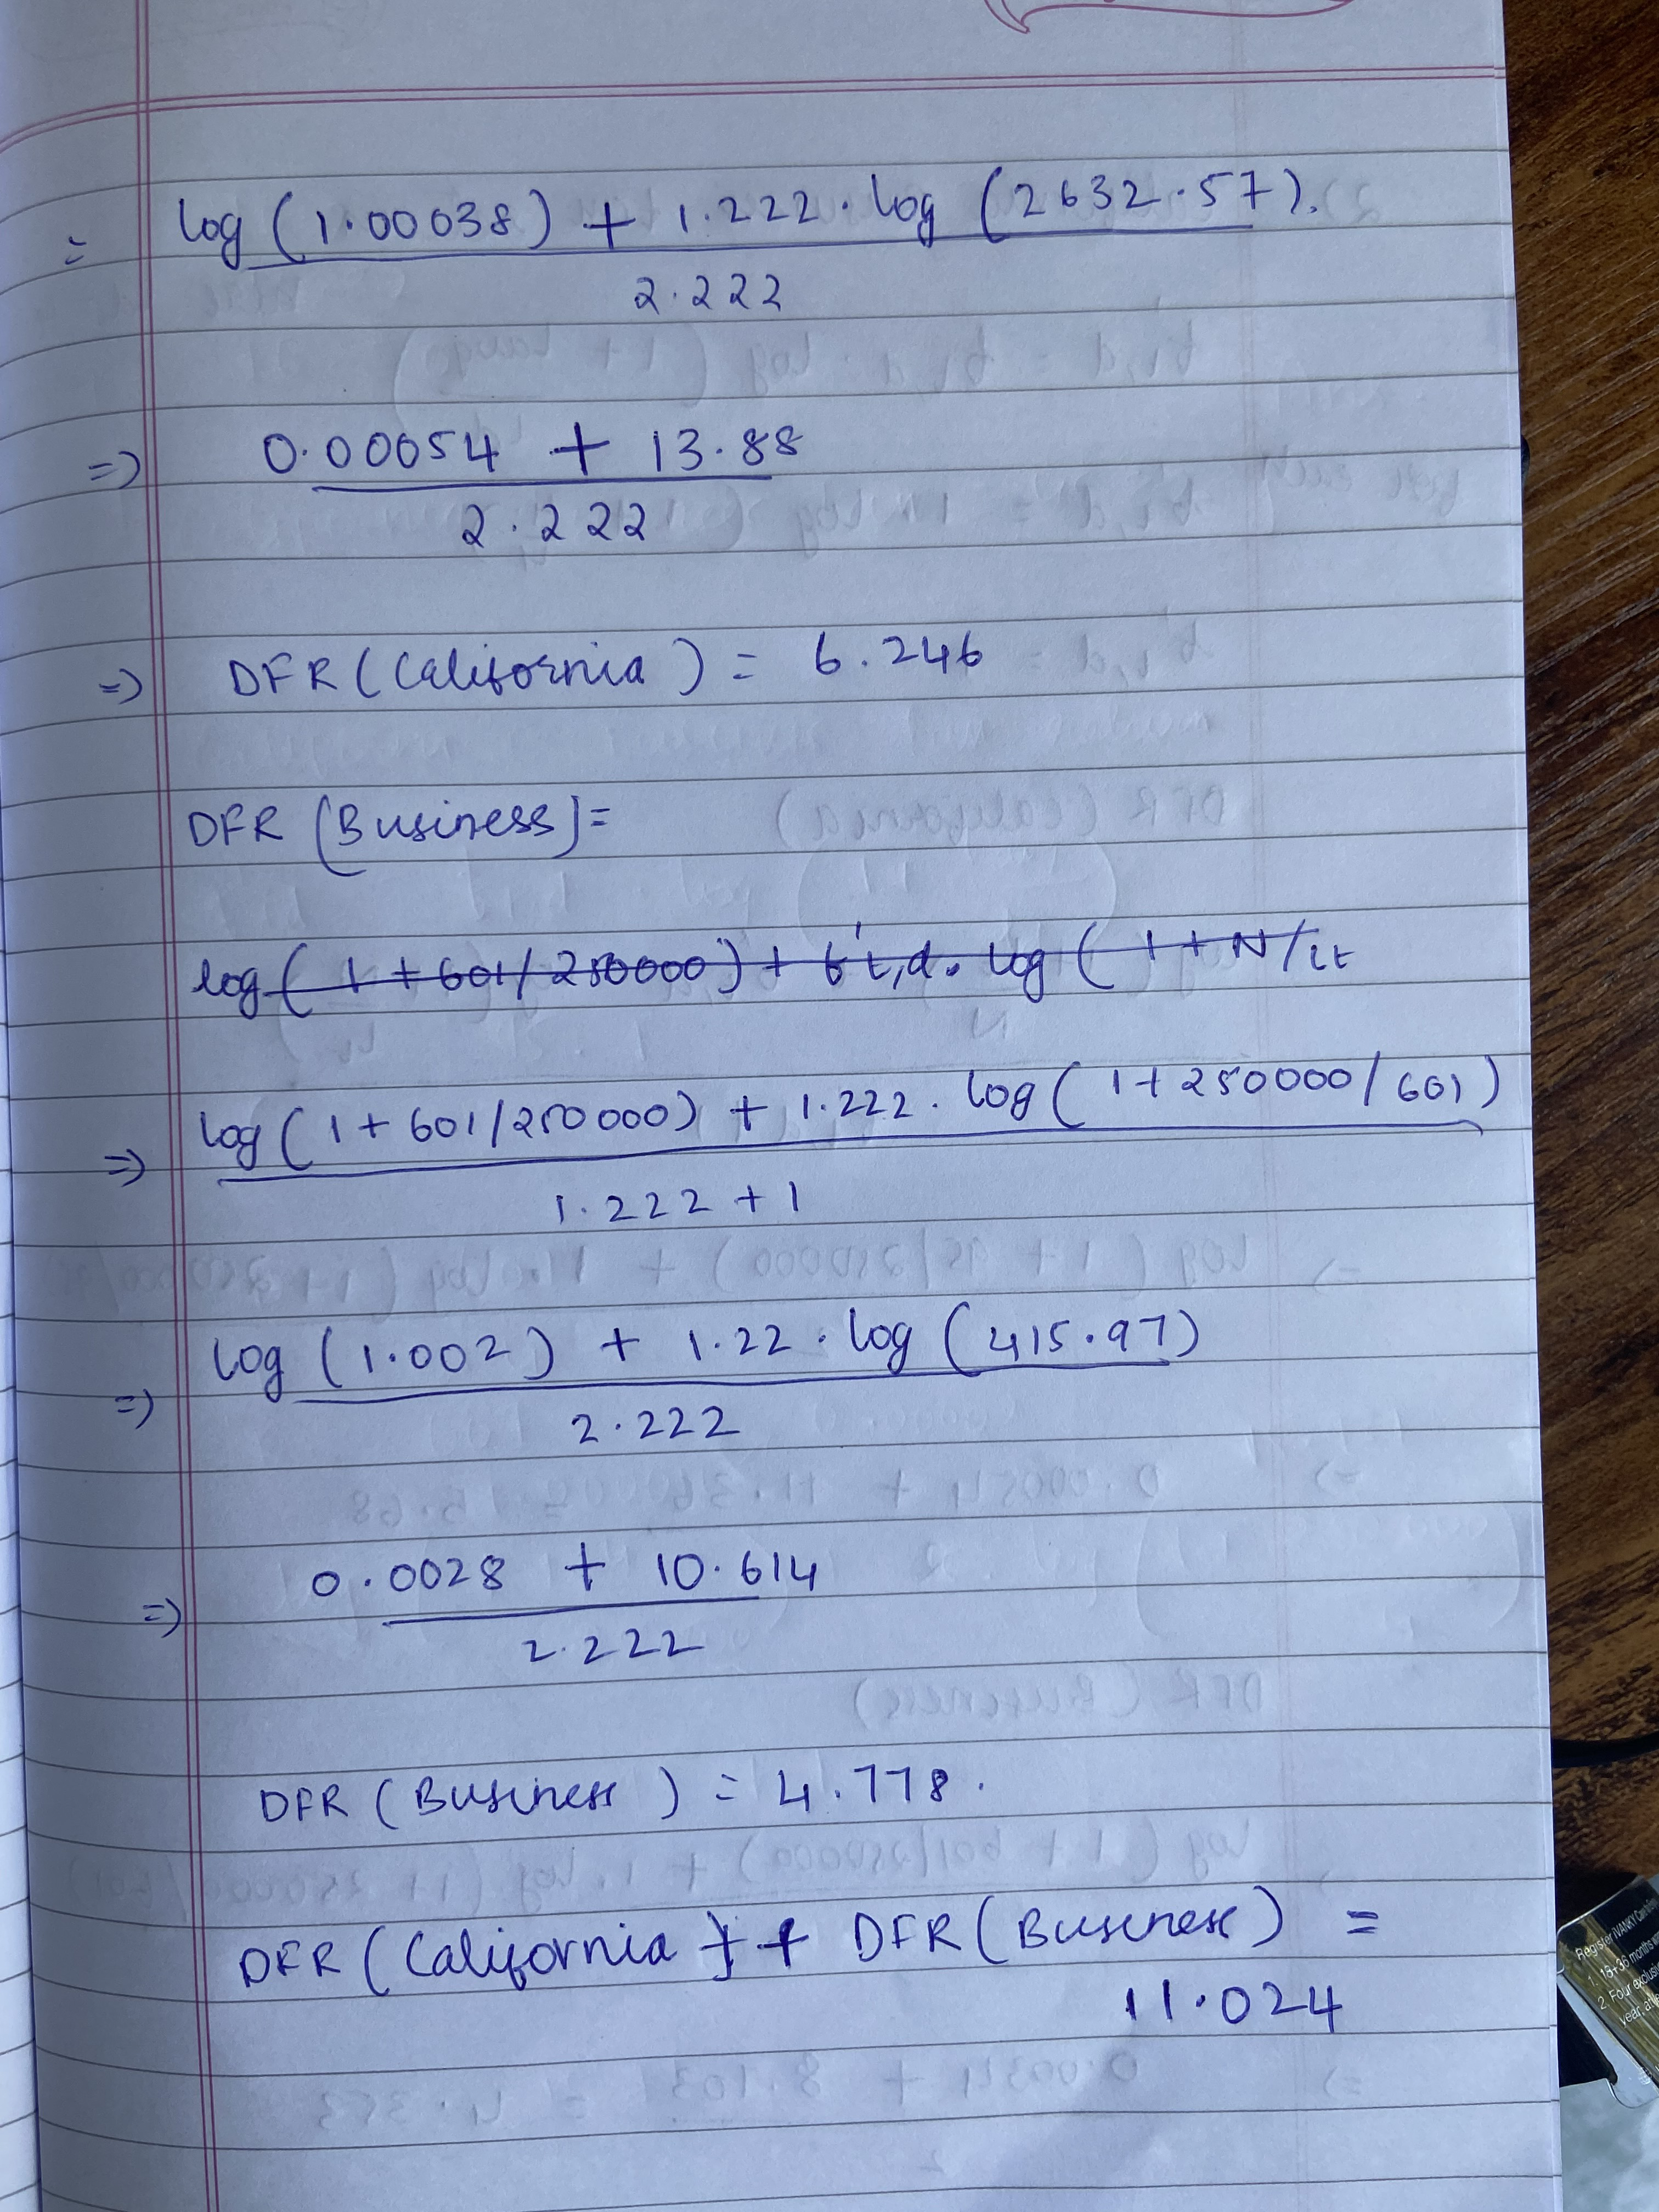 = log (1.00038) + 1.222 . log (2632.57).
2.222
=> 0.00054 + 13.88
2.222
=> DFR (California) = 6.246
DFR (Business) =
log ( 1 + 601/250000) + t't,d. log ( 1 + N/lt
=> log ( 1 + 601/250000) + 1.222 . log ( 1 + 250000/601)
1.222 + 1
=> log (1.002) + 1.22 . log (415.97)
2.222
=> 0.0028 + 10.614
2.222
DFR (Business) = 4.778.
DFR (California) + DFR (Business) =
11.024
Register iVANKY
1. 18+36 months
2. Four
year,